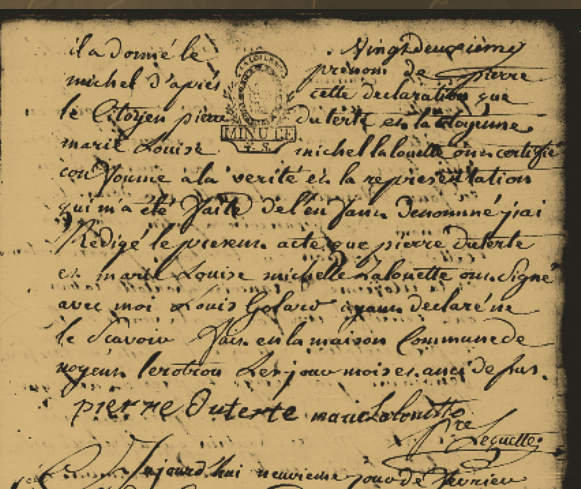 il a donné le Vingt deuxieme
michel d'après prenom de pierre
cette declaration que
le Citoyen pierre Duterte et la Citoyenne
MINUTE
marie Louise michel lalouette ont certifié
conforme a la verité et la representation
qui m'a été faite de l'enfant denommé j'ai
Redigé le present acte que pierre duterte
et marie Louise michelle Lalouette ont Signé
avec moi Louis ayant declaré ne
le Scavoir fait en la maison Commune de
noyen les jour mois et an ci dessus.
pierre Duterte marie Lalouette
Lequette
Aujourd'hui neuvieme jour de fevrier